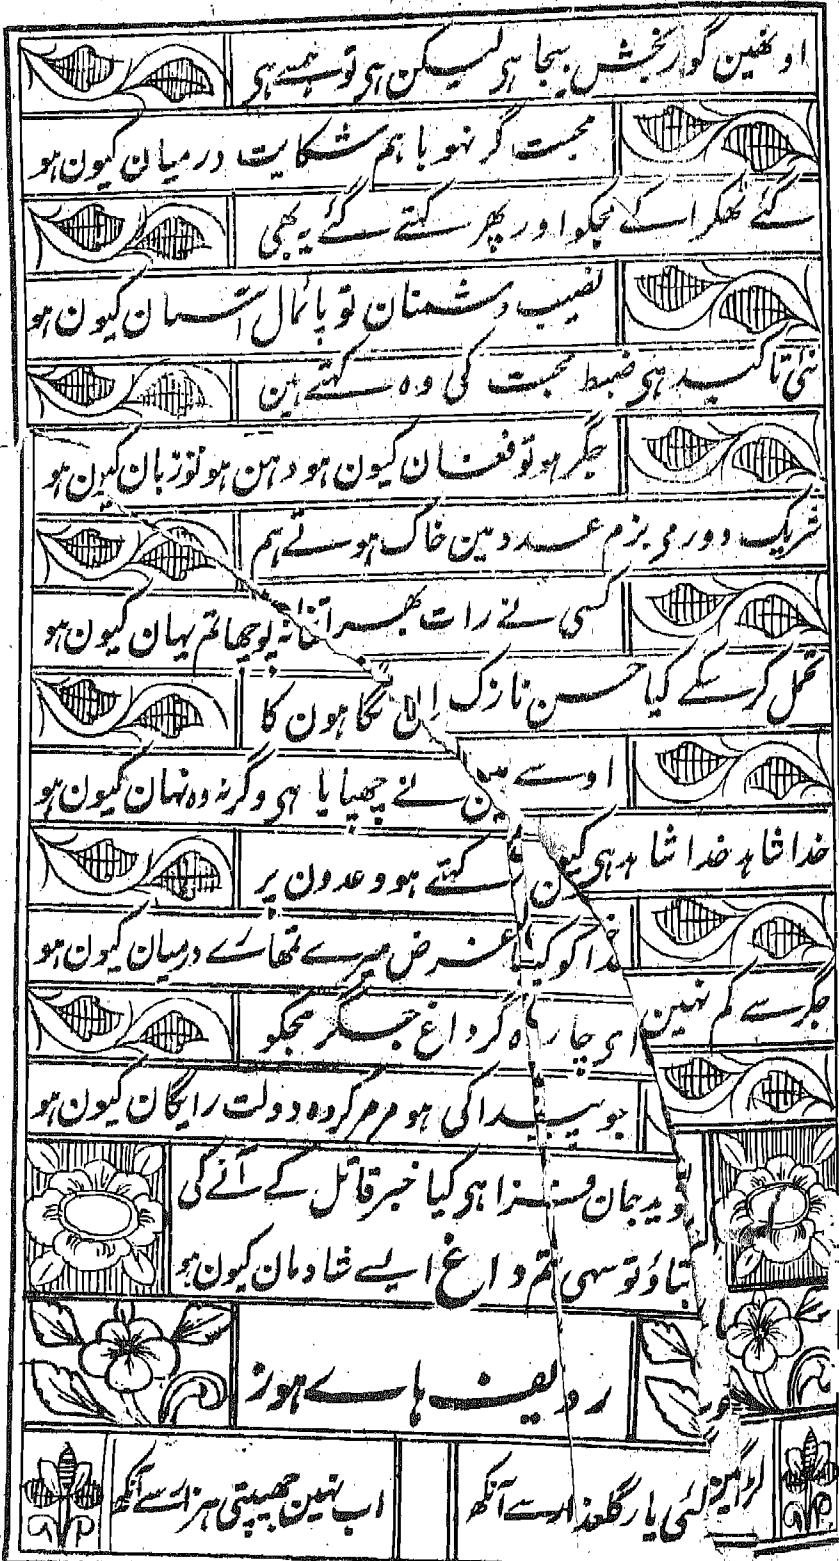 اونھین گو رنجش بیجا ہی لیکن ہی تو ہمسے ہی
محبت گر نہو باہم شکایت درمیان کیون ہو
گئے ٹھکرا کے مجکو اور پھر کہتے گئے یہ بھی
نصیب دشمنان تو پائمال آسمان کیون ہو
نئی تاکید ہی ضبط محبت کی وہ کہتے ہین
جگر ہو تو فغان کیون ہو دہن ہو تو زبان کیون ہو
شریک دور می بزم عدو مین خاک ہوتے ہم
کسی نے رات بھر اتنا نہ پوچھا تم یہان کیون ہو
تحمل کر سکے کیا حسن نازک ان نگاہون کا
اوسے مین نے چھپایا ہی وگرنہ وہ نہان کیون ہو
خدا شاہد خدا شاہد ہی کیون کہتے ہو وعدون پر
خدا کو کیا غرض میرے تمھارے درمیان کیون ہو
جگر سے کم نہین ای چارہ گر داغ جگر مجکو
جو پیدا کی ہو مر مر کر وہ دولت رایگان کیون ہو
نوید جان فزا ہی کیا خبر قاتل کے آنے کی
بتاؤ تو سہی تم داغ ایسے شادمان کیون ہو
ردیف ہاے ہوز
لڑ گئی یار گلعذار سے آنکھ
اب نہین جھپتی ہزار سے آنکھ